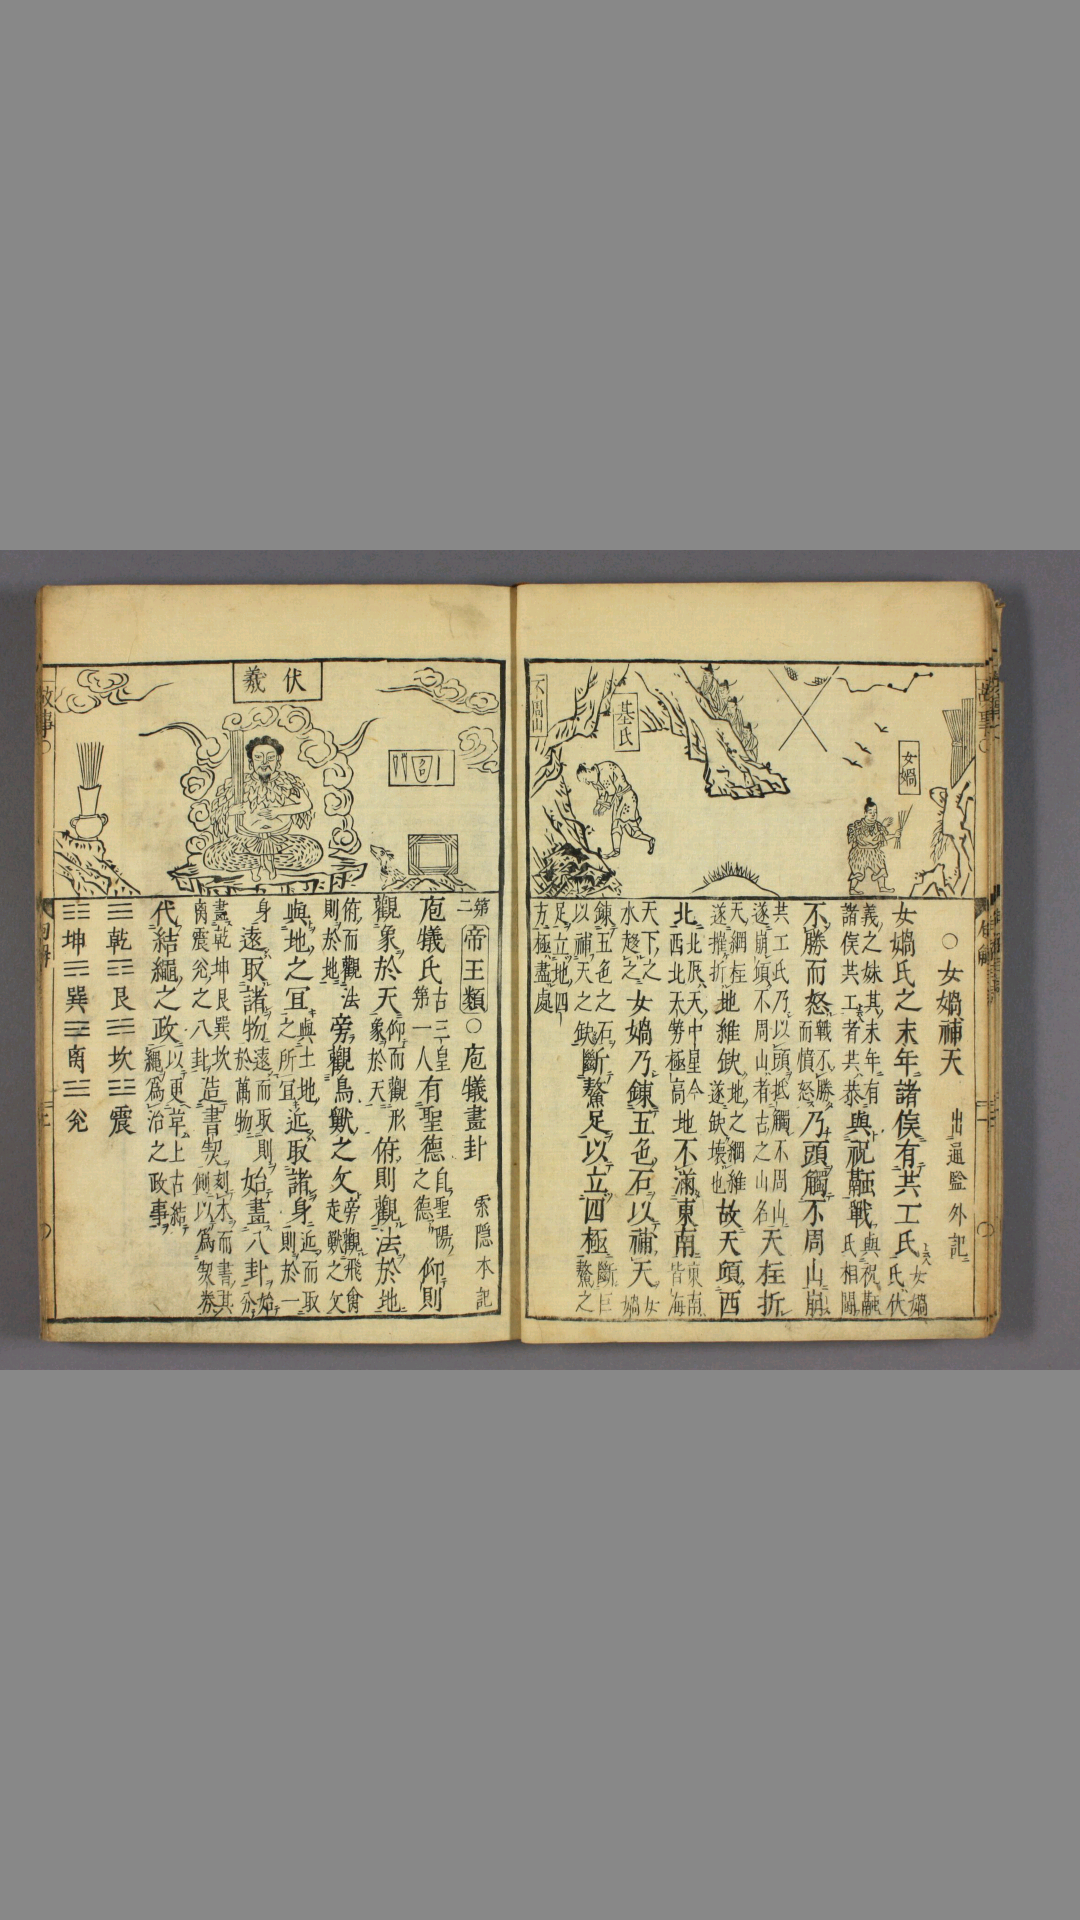 不周山
基氏
女媧
○女媧補天 出通監外記
女媧氏之末年諸侯有共工氏 女媧氏伏
羲之妹其末年有諸侯共工者共恭 與祝融戰 與祝融氏相鬪
不勝而怒 戰不勝而憤怒 乃頭觸不周山崩
共工氏乃以頭抵觸不周山遂崩頽不周山者古之山名 天柱折
天綱柱遂摧折 地維缺 地之綱維遂缺壞也 故天頃西
北 北辰天中星今西北太勞極高 地不滿東南 東南皆海
天下之水趍之 女媧乃鍊五色石以補天 女媧
鍊五色之石以補天之缺 斷鰲足以立四極 斷巨鰲之
足立地四方極盡處
伏羲
第二 帝王類 ○庖犧畫卦 索隠本記
庖犧氏 古三皇第一人 有聖德 自聖陽之德 仰則
觀象於天 仰而觀形象於天 俯則觀法於地
俯而觀法則於地 旁觀鳥獸之文 旁觀飛禽走獸之文
與地之宜 與土地之所宜 近取諸身 近而取則於一
身 遠取諸物 遠而取則於萬物 始畫八卦 始分
畫乾坤艮巽坎离震兊之八卦 造書契 刻木而書其側以為契券
代結繩之政 以更草上古結繩為治之政事
☰乾☶艮☵坎☳震
☷坤☴巽☲离☱兊